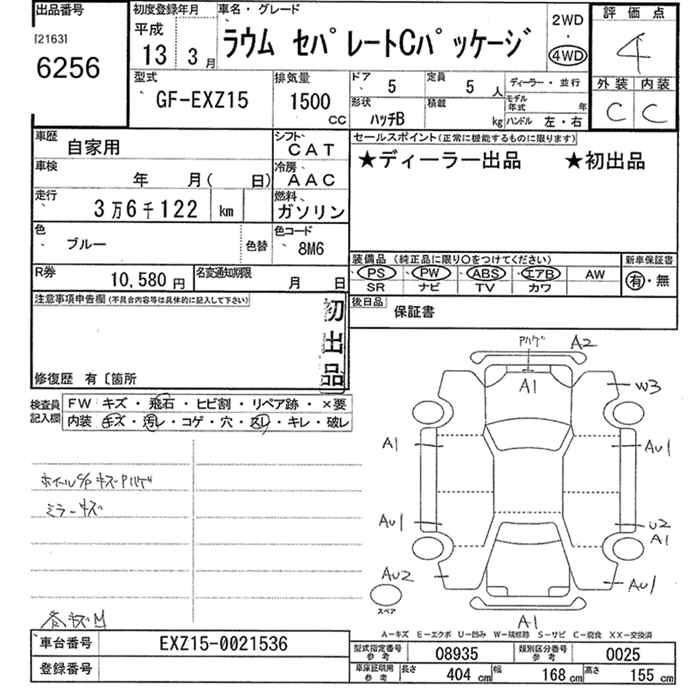 出品番号
[2163]
6256
初度登録年月
平成
13 3月
車名・グレード
ラウム セパレートCパッケージ
2WD
・
4WD
評価点
4
外装 内装
C C
型式
GF-EXZ15
排気量
1500
CC
ドア
5
定員
5 人
形状
ハッチB
積載
kg
ディーラー・並行
モデル年式 年
ハンドル 左・右
車歴
自家用
シフト
CAT
セールスポイント(正常に機能するものに限ります)
★ディーラー出品 ★初出品
車検
年 月( 日)
冷房
AAC
走行
3万6千122 km
燃料
ガソリン
色
ブルー
色替
色コード
8M6
R券
10,580 円
名変通知期限
月 日
装備品(純正品に限り〇をつけてください)
PS PW ABS エアB AW
SR ナビ TV カワ
新車保証書
有・無
後日品
保証書
注意事項申告欄(不具合内容等は具体的に記入して下さい)
初出品
修復歴 有〔箇所
検査員記入欄
FW キズ・飛石・ヒビ割・リペア跡・×要
内装 キズ・汚レ・コゲ・穴・スレ・キレ・破レ
ホイルC/P キズ・Pハゲ
ミラーキズ
Pハゲ A2
A1
W3
A1
AU1
AU1
U2
A1
AU2
AU1
A1
スペア
A-キズ E-エクボ U-凹み W-補修跡 S-サビ C-腐食 XX-交換済
車台番号
EXZ15-0021536
登録番号
型式指定番号
参考
08935
類別区分番号
参考
0025
車庫証明用
参考
長さ 404 cm 幅 168 cm 高さ 155 cm